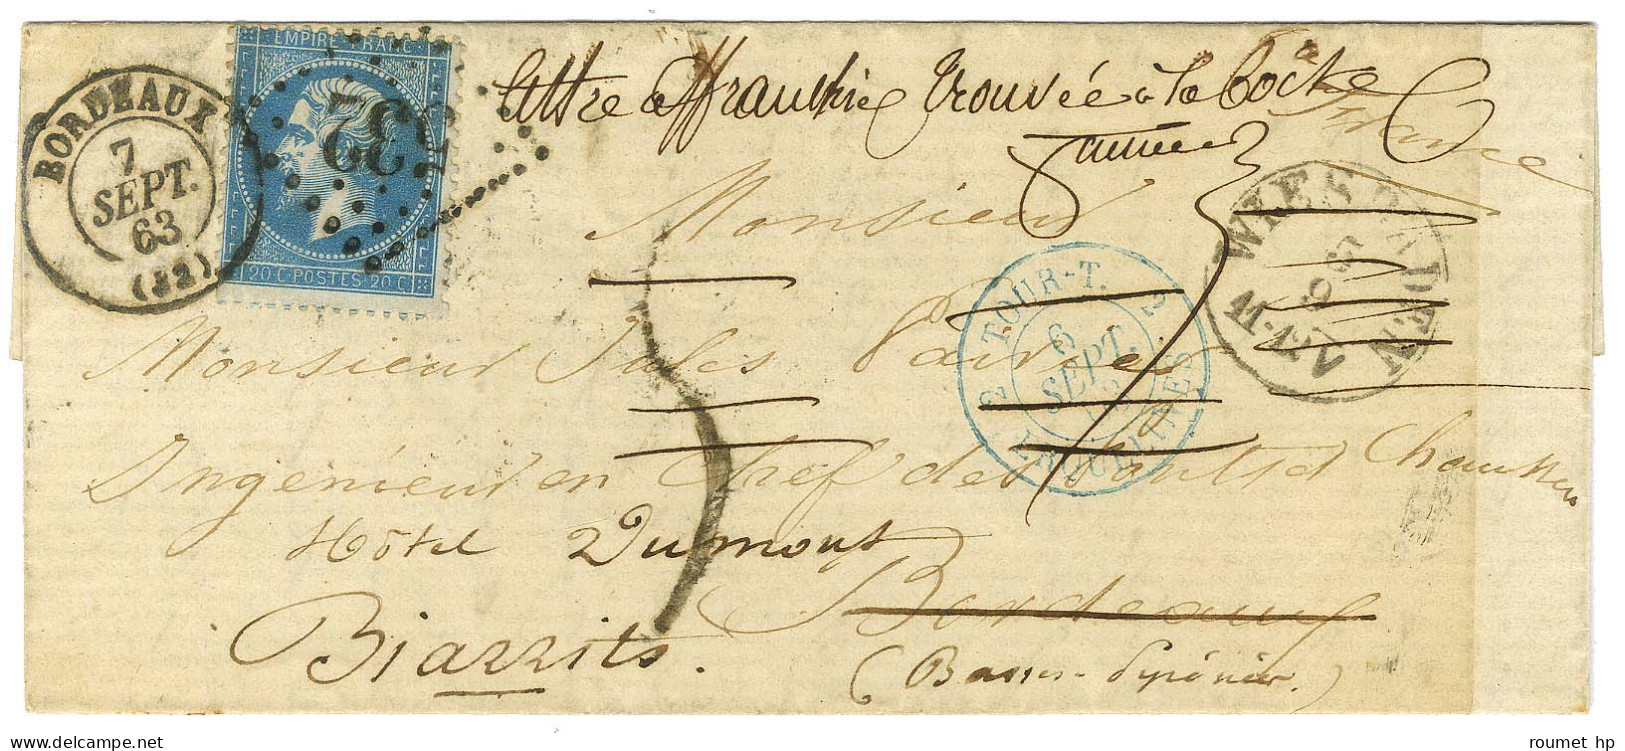 EMPIRE FRANC
20 C. POSTES 20 C.
532
BORDEAUX
7
SEPT.
63
(32)
Lettre affranchie trouvée à la boîte
France
WIESBADEN
11-12
TOUR-T.
6
SEPT.
ERQUELINES
Monsieur
Monsieur Jules
Ingénieur en Chef des Ponts et Chaussées
Hôtel Dumont
Bordeaux
Biarrits.
(Basses-Pyrénées.)
roumet hp
delcampe.net